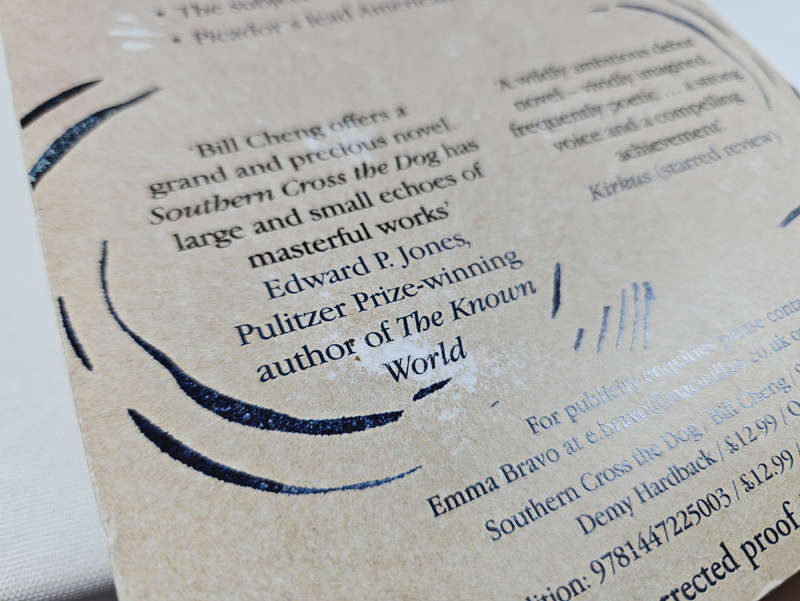 • The subject
• Picador's lead American
'Bill Cheng offers a
grand and precious novel.
Southern Cross the Dog has
large and small echoes of
masterful works'
Edward P. Jones,
Pulitzer Prize-winning
author of The Known
World
'A wildly ambitious debut
novel – vividly imagined,
frequently poetic ... a strong
voice and a compelling
achievement'
Kirkus (starred review)
For publicity enquiries please conta
Emma Bravo at e.bravo@macmillan.co.uk o
Southern Cross the Dog / Bill Cheng / 9
Demy Hardback / £12.99 / O
ition: 9781447225003 / £12.99 /
rrected proof